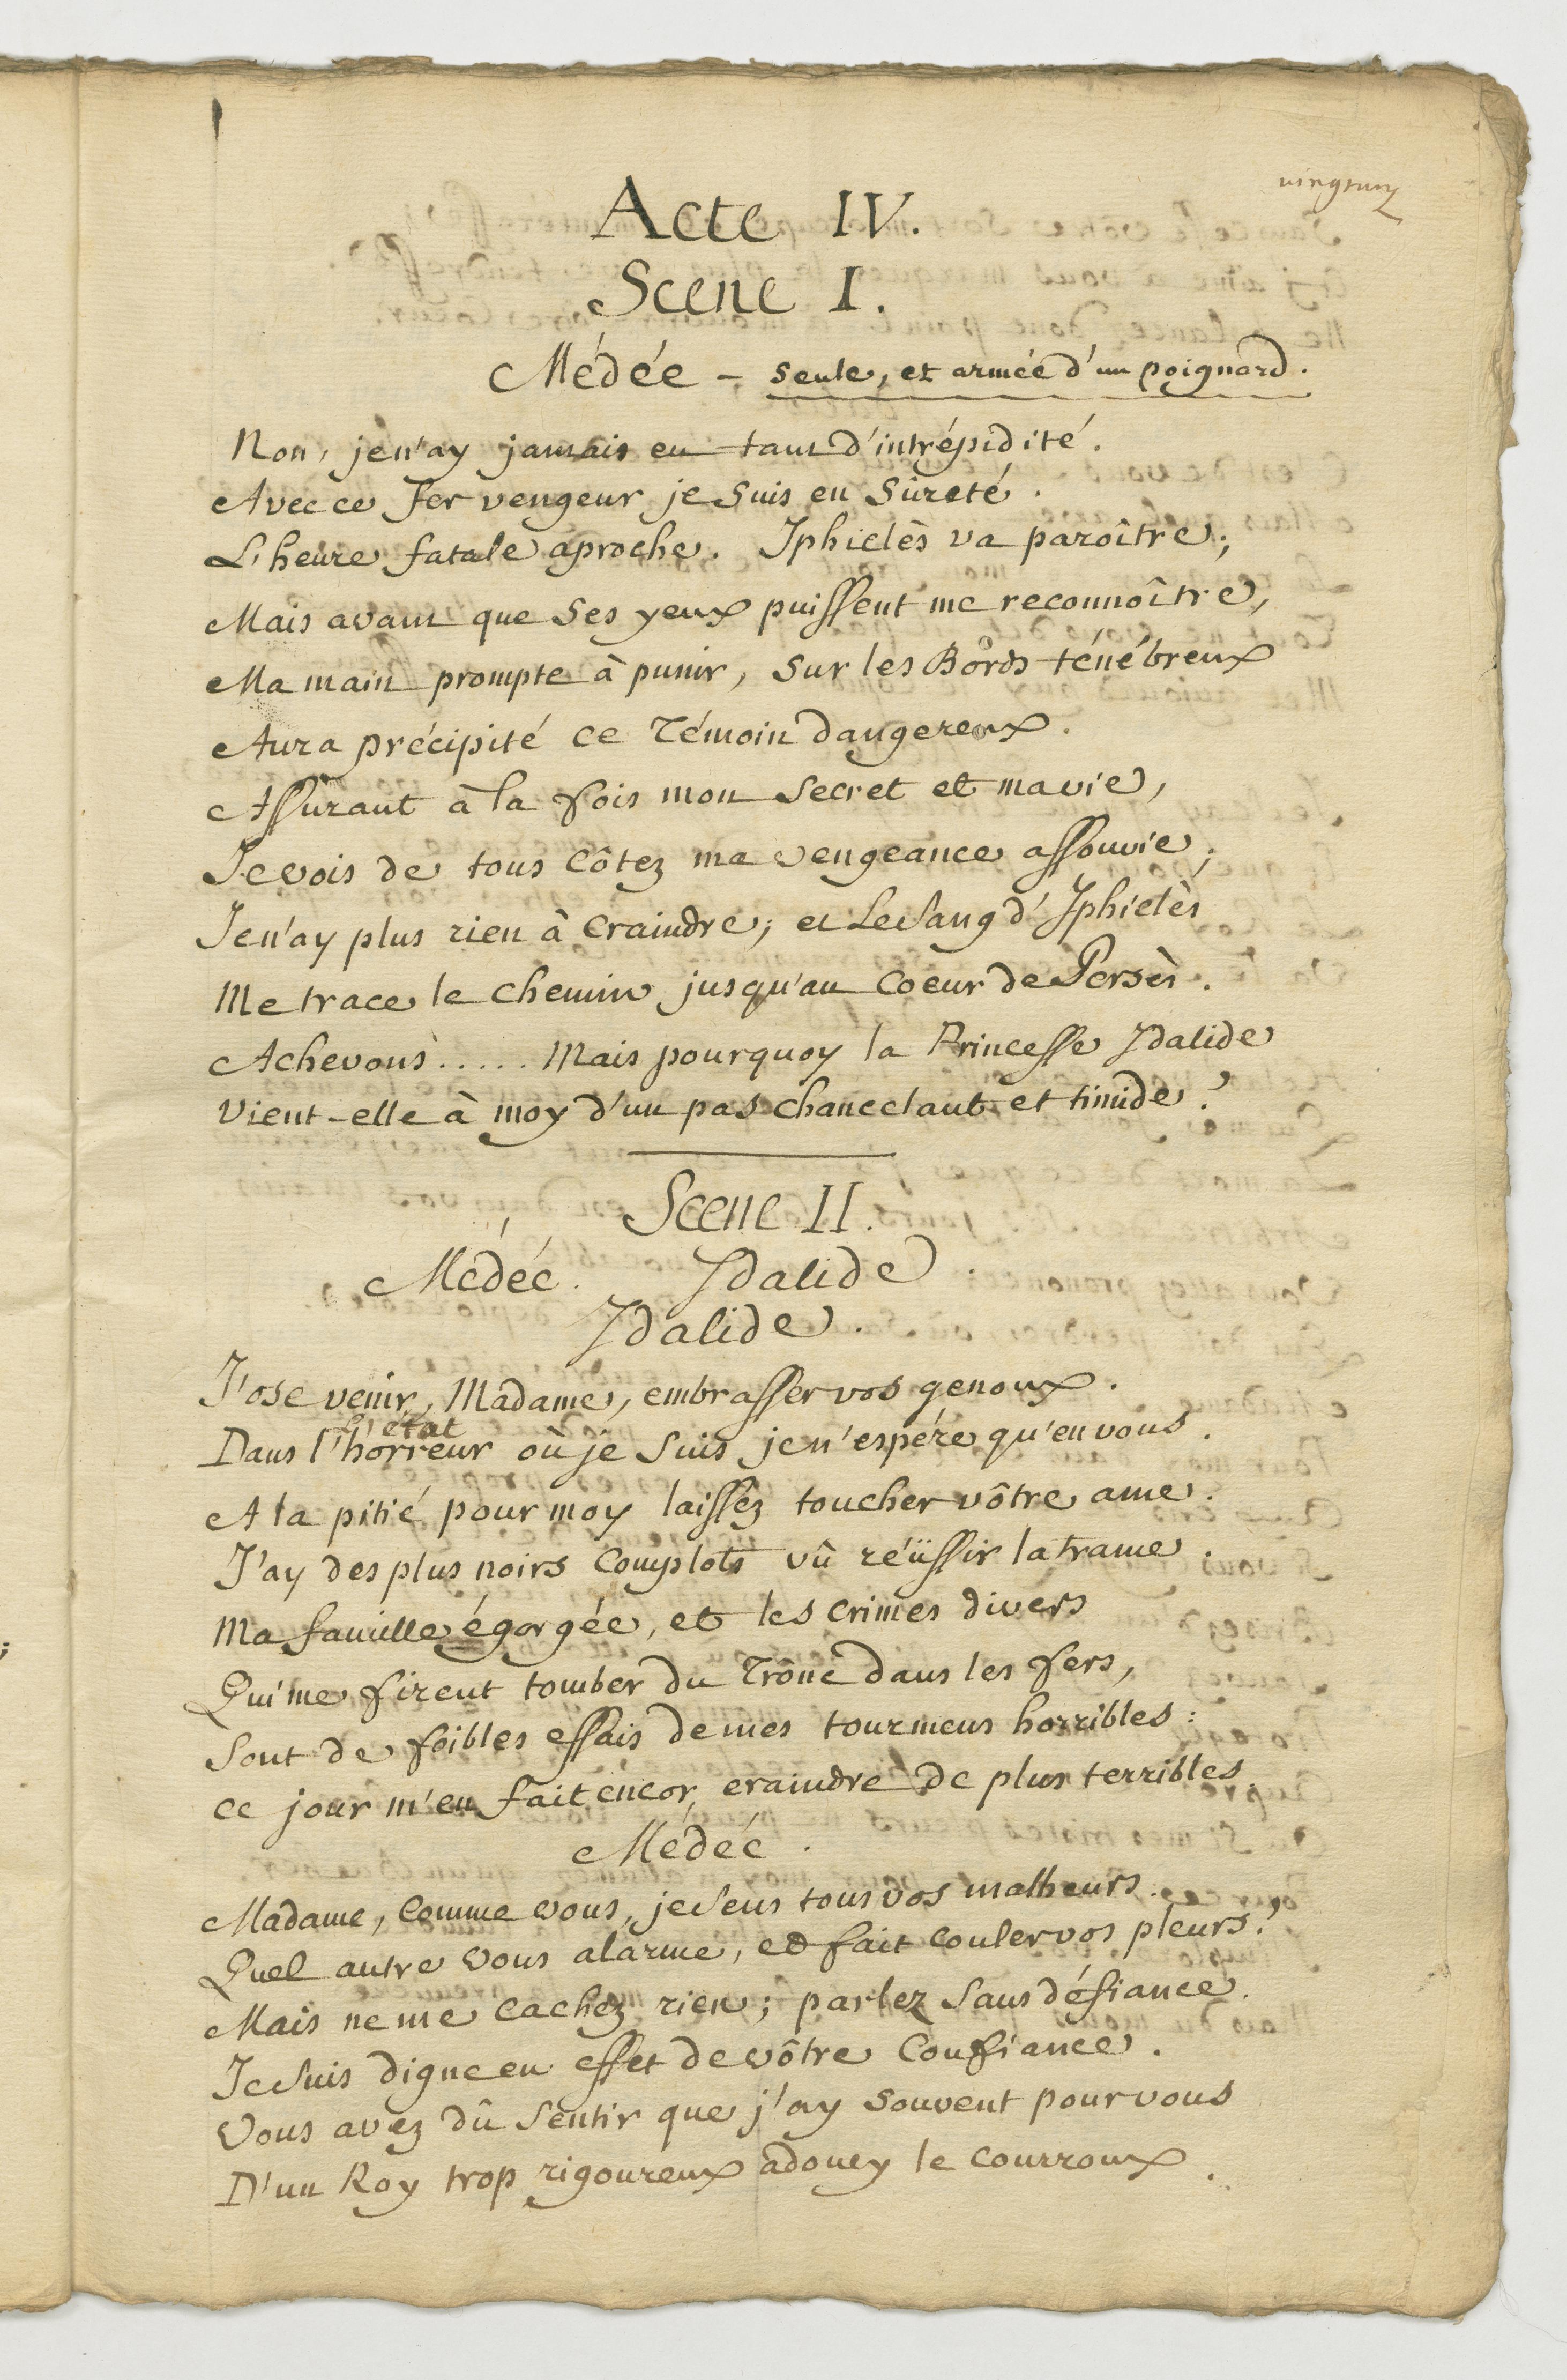 vingtun
Acte IV.
Scene I.
Médée - seule, et armée d'un poignard.
Non, je n'ay jamais eu tant d'intrépidité.
Avec ce fer vengeur je suis en sûreté.
L'heure fatale aproche. Iphiclès va paroître;
Mais avant que ses yeux puissent me reconnoître,
Ma main prompte à punir, sur les Bords ténébreux
Aura précipité ce Témoin dangereux.
Assurant à la fois mon secret et ma vie,
Je vois de tous côtez ma vengeance assouvie;
Je n'ay plus rien à craindre; et le sang d'Iphiclès
Me trace le chemin jusqu'au coeur de Persès.
Achevons..... Mais pourquoy la Princesse Idalide
Vient-elle à moy d'un pas chancelant et timide?
Scene II.
Médée. Idalide.
Idalide.
J'ose venir, Madame, embrasser vos genoux.
état
Dans l'horreur où je suis je n'espére qu'en vous.
A la pitié pour moy laissez toucher vôtre ame.
J'ay des plus noirs complots vû réüssir la trame.
Ma famille égorgée, et les crimes divers
Qui me firent tomber du Trône dans les fers,
Sont de foibles essais de mes tourmens horribles:
Ce jour m'en fait encor craindre de plus terribles.
Médée.
Madame, comme vous, je sens tous vos malheurs.
Quel autre vous alarme, et fait couler vos pleurs?
Mais ne me cachez rien; parlez sans défiance.
Je suis digne en effet de vôtre confiance.
Vous avez dû sentir que j'ay souvent pour vous
D'un Roy trop rigoureux adoucy le courroux.